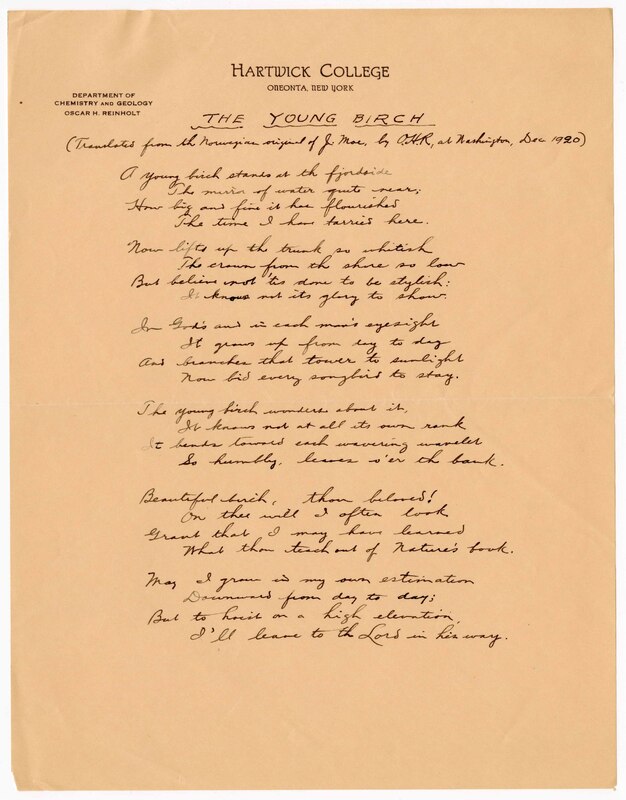 HARTWICK COLLEGE
ONEONTA, NEW YORK
DEPARTMENT OF
CHEMISTRY AND GEOLOGY
OSCAR H. REINHOLT
THE YOUNG BIRCH
(Translated from th Norwegian original of J. Moe, by O.H.R, at Washington, Dec. 1920)
A young birch stands at th fjordside
The mirror of water quite near;
How big and fine it has flourished
The time I have tarried here.
Now lifts up the trunk so whitish
The crown from th shore so low
But believe not 'tis done to be stylish:
It knows not its glory to show.
In God's and in each man's eyesight
It grows up from day to day
And branches that tower to sunlight
Now bid every songbird to stay.
The young birch wonders about it,
It knows not at all its own rank
It bends toward each wavering wavelet
So humbly, leaves o'er th bank.
Beautiful birch, thou beloved!
On thee will I often look
Grant that I may have learned
What thou teach out of Nature's book.
May I grow in my own estimation
Downward from day to day;
But to hoist on a high elevation,
I'll leave to th Lord in his way.